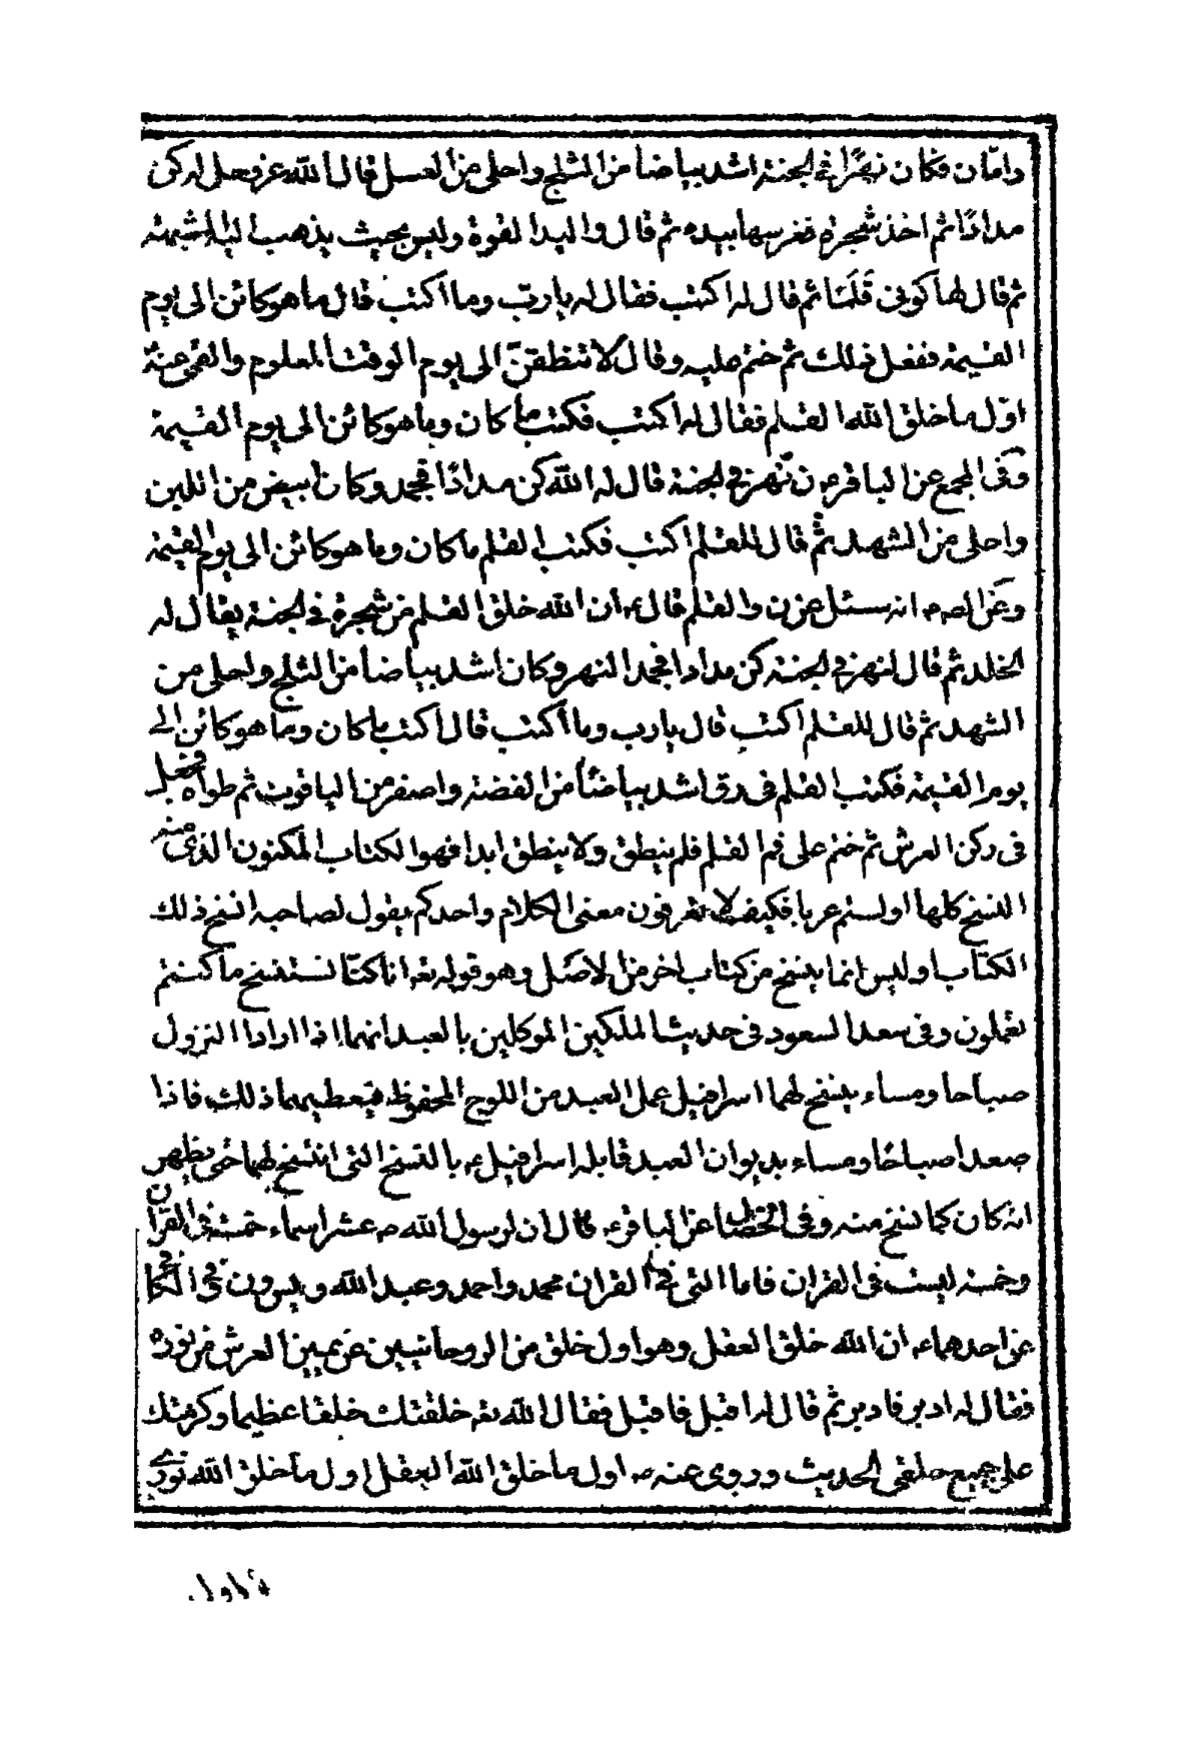 وامّا ن فكان نهرًا في الجنة اشد بياضا من الثلج واحلى من العسل قال الله عز وجل له كن
مدادًا ثم اخذ شجرة فغرسها بيده ثم قال واليد القوة وليس بحيث يذهب اليه المشبهة
ثم قال لها كونى قَلَمًا ثم قال له اكتب فقال له يا ربّ وما اكتب قال ما هو كائن الى يوم
القيمة ففعل ذلك ثم ختم عليه وقال لا تنطقنّ الى يوم الوقت المعلوم والقمى عنه
اوّل ما خلق الله القلم فقال له اكتب فكتب ما كان وما هو كائن الى يوم القيمة
وفى المجمع عن الباقر ع ن نهر في الجنة قال له الله كن مدادًا فجمد وكان ابيض من اللبن
واحلى من الشهد ثم قال للقلم اكتب فكتب القلم ما كان وما هو كائن الى يوم القيمة
وعن الص م انه سئل عن ن والقلم قال ع ان الله خلق القلم من شجرة في الجنة يقال له
الخلد ثم قال لنهر في الجنة كن مدادا فجمد النهر وكان اشد بياضا من الثلج واحلى من
الشهد ثم قال للقلم اكتب قال يا رب وما اكتب قال اكتب ما كان وما هو كائن الى
يوم القيمة فكتب القلم فى رق اشد بياضًا من الفضة واصفر من الياقوت ثم طواه فجعله
فى ركن العرش ثم ختم على فم القلم فلم ينطق ولا ينطق ابدا فهو الكتاب المكنون الذى منه
النسخ كلها اولستم عربا فكيف لا تعرفون معنى الكلام واحدكم يقول لصاحبه انسخ ذلك
الكتاب اوليس انما ينسخ من كتاب اخر من الاصل وهو قوله تعه انا كنّا نستنسخ ما كنتم
تعملون وفى سعد السعود فى حديث الملكين الموكلين بالعبد انهما اذا ارادا النزول
صباحا ومساء ينسخ لهما اسرافيل عمل العبد من اللوح المحفوظ فيعطيهما ذلك فاذا
صعدا صباحًا ومساء بديوان العبد قابله اسرافيل ع بالنسخ التى انتسخ لهما حتى يظهر
انه كان كما نسخ منه وفى الخصال عن الباقر ع قال ان لرسول الله ص عشر اسماء خمسة فى القران
وخمسة ليست فى القران فاما التى فى القران محمد واحمد وعبد الله ويس ون وفى الكافى
عن احدهما ع ان الله خلق العقل وهو اول خلق من الروحانيين عن يمين العرش من نوره
فقال له ادبر فادبر ثم قال له اقبل فاقبل فقال الله تعه خلقتك خلقا عظيما وكرمتك
على جميع خلقى الحديث وروى عنه ص اول ما خلق الله العقل اول ما خلق الله نورى